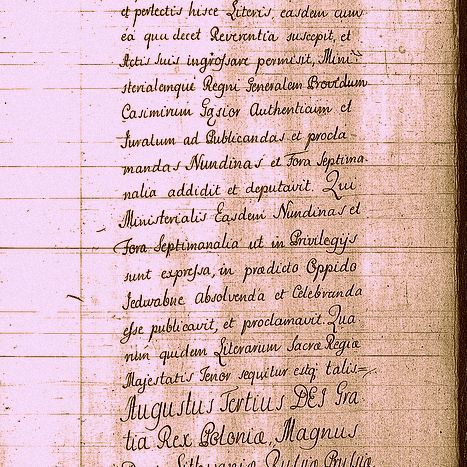 et perlectis hisce Literis, easdem cum
ea qua decet Reverentia suscepit, et
Actis suis ingrossare permisit, Mini-
sterialemqui Regni Generalem Providum
Casimirum Gąsior Authenticum et
Juratum ad Publicandas et procla-
mandas Nundinas et Fora Septima-
nalia addidit et deputavit. Qui
Ministerialis Easdem Nundinas et
Fora Septimanalia ut in Privilegijs
sunt expressa, in prædicto Oppido
Absolvenda et Celebranda
esse publicavit, et proclamavit. Qua
rum quidem Literarum Sacræ Regiæ
Majestatis Tenor sequitur estq talis=
Augustus Tertius DEI Gra
tia Rex Poloniæ, Magnus
Lithvaniæ Russiæ Prussiæ